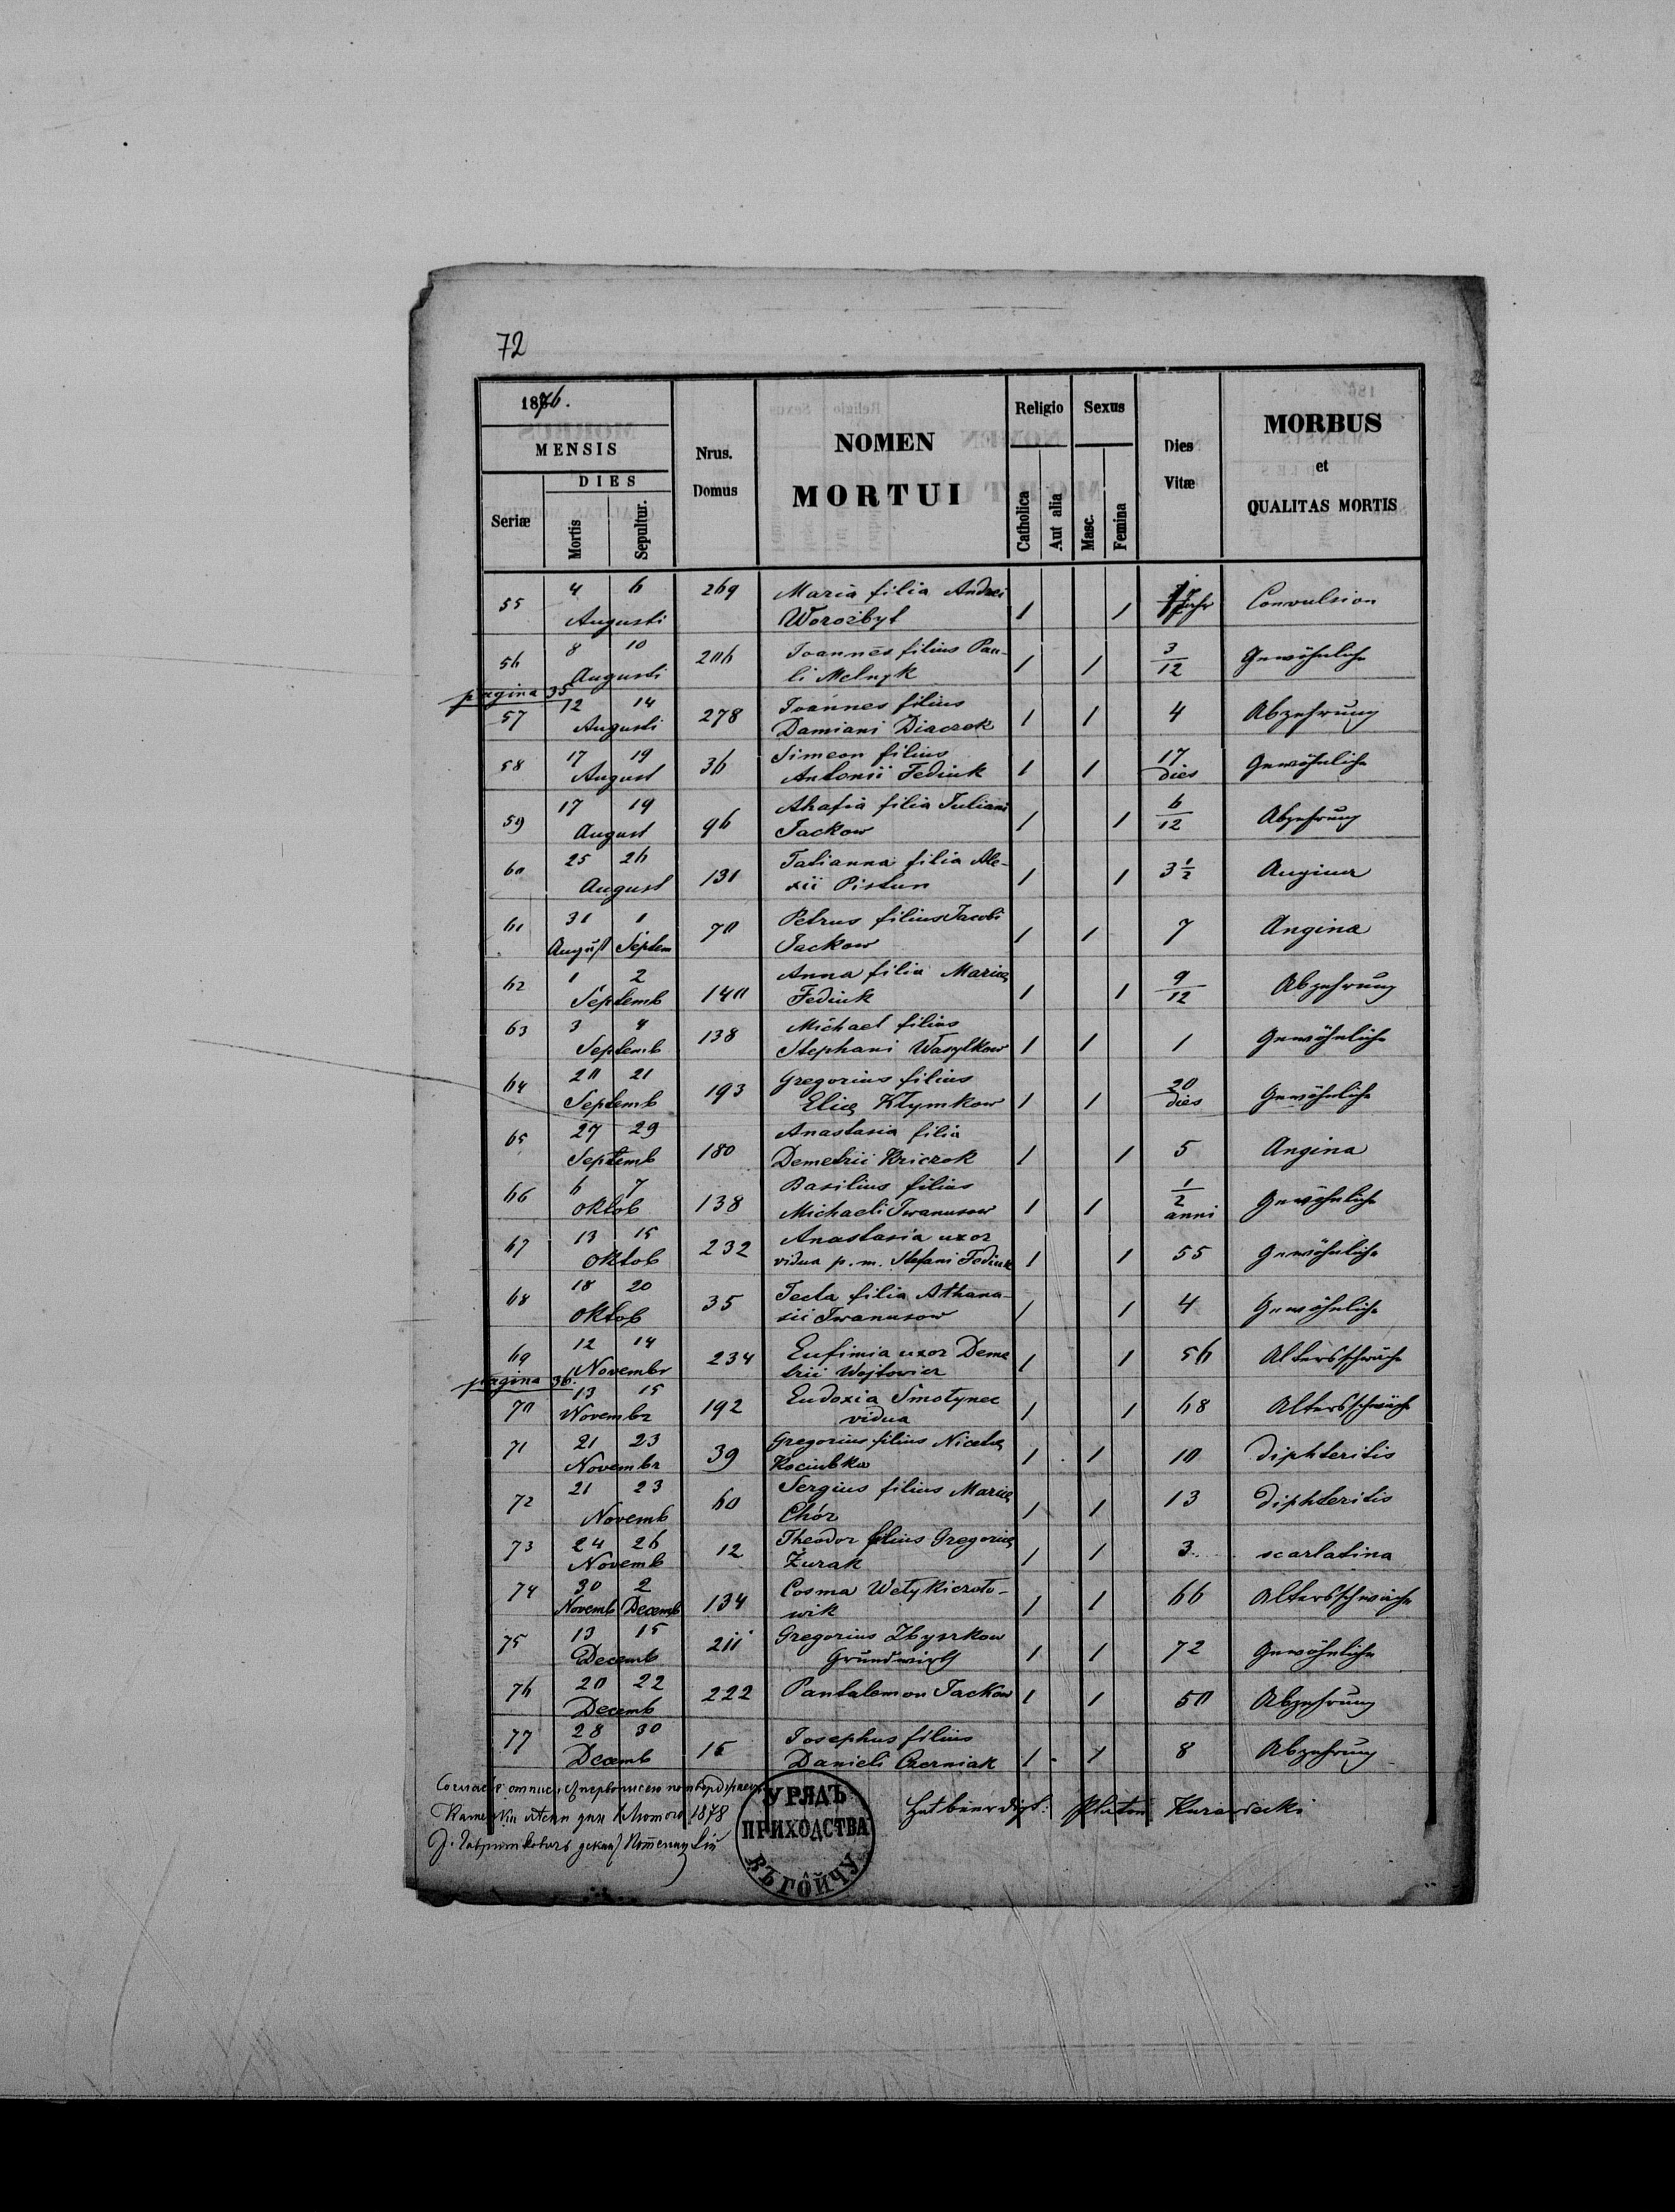 72
1876.
MENSIS
DIES
Seriæ
Mortis
Sepultur.
Nrus. Domus
NOMEN
MORTUI
Religio
Catholica
Aut alia
Sexus
Masc.
Femina
Dies
Vitæ
MORBUS
et
QUALITAS MORTIS
55 4 6 269 Maria filia Andrei 1 1 1 Jahr Convulsion
Augusti Worożbyt
56 8 10 206 Joannes filius Pau- 1 1 3/12 Gewöhnliche
Augusti li Melnyk
pagina 35
57 12 14 278 Joannes filius 1 1 4 Abzehrung
Augusti Damiani Diaczek
58 17 19 36 Simeon filius 1 1 17 dies Gewöhnliche
August Antonii Fediuk
59 17 19 96 Ahafia filia Juliani 1 1 6/12 Abzehrung
August Jackow
60 25 26 131 Tatianna filia Ale- 1 1 3 1/2 Angina
August xii Pistun
61 31 1 70 Petrus filius Jacobi 1 1 7 Angina
August Septem Jackow
62 1 2 140 Anna filia Mariæ 1 1 9/12 Abzehrung
Septemb Fediuk
63 3 4 138 Michael filius 1 1 1 Gewöhnliche
Septemb Stephani Wasylkow
64 20 21 193 Gregorius filius 1 1 20 dies Gewöhnliche
Septemb Eliæ Kłymkow
65 27 29 180 Anastasia filia 1 1 5 Angina
Septemb Demetrii Kriczok
66 6 7 138 Basilius filius 1 1 1/2 anni Gewöhnliche
Oktob Michaeli Iwanusow
67 13 15 232 Anastasia uxor 1 1 55 Gewöhnliche
Oktob vidua p. m. Stefani Fediuk
68 18 20 35 Tecla filia Athana- 1 1 4 Gewöhnliche
Oktob sii Iwanusow
69 12 14 234 Eufimia uxor Deme 1 1 56 Altersschwäche
Novembr trii Wojtowicz
pagina 36.
70 13 15 192 Eudoxia Smotynec 1 1 68 Altersschwäche
Novembr vidua
71 21 23 39 Gregorius filius Nicetæ 1 1 10 Diphteritis
Novembr Kociubka
72 21 23 60 Sergius filius Mariæ 1 1 13 Diphteritis
Novemb Chór
73 24 26 12 Theodor filius Gregorii 1 1 3 scarlatina
Novemb Żurak
74 30 2 134 Cosma Wełykiczoło- 1 1 66 Altersschwäche
Novemb Decemb wik
75 13 15 211 Gregorius Zbyrkow 1 1 72 Gewöhnliche
Decemb Grundwirth
76 20 22 222 Pantalemon Jackow 1 1 50 Abzehrung
Decemb
77 28 30 15 Josephus filius 1 1 8 Abzehrung
Decemb Danieli Czerniak
1878
УРЯДЪ
ПРИХОДСТВА
ВЪ ГОЙЧУ